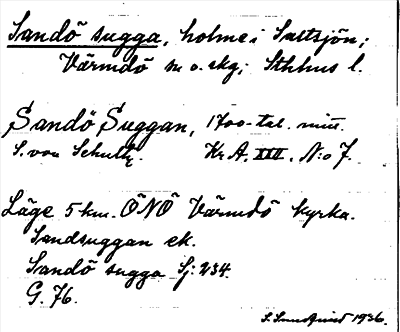 Sandö sugga, holme i Saltsjön;
Värmdö sn o. skg; Sthlms l.
Sandö Suggan, 1700-tal. mitt.
S. von Schultz. Kr. A. XIII. N:o 7.
Läge 5 km. ÖNÖ Värmdö kyrka.
Sandsuggan ek.
Sandö sugga Sj: 234.
G. 76.
1936.